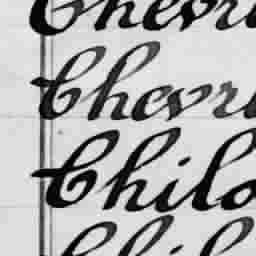 Chevr
Chevr
Chilo